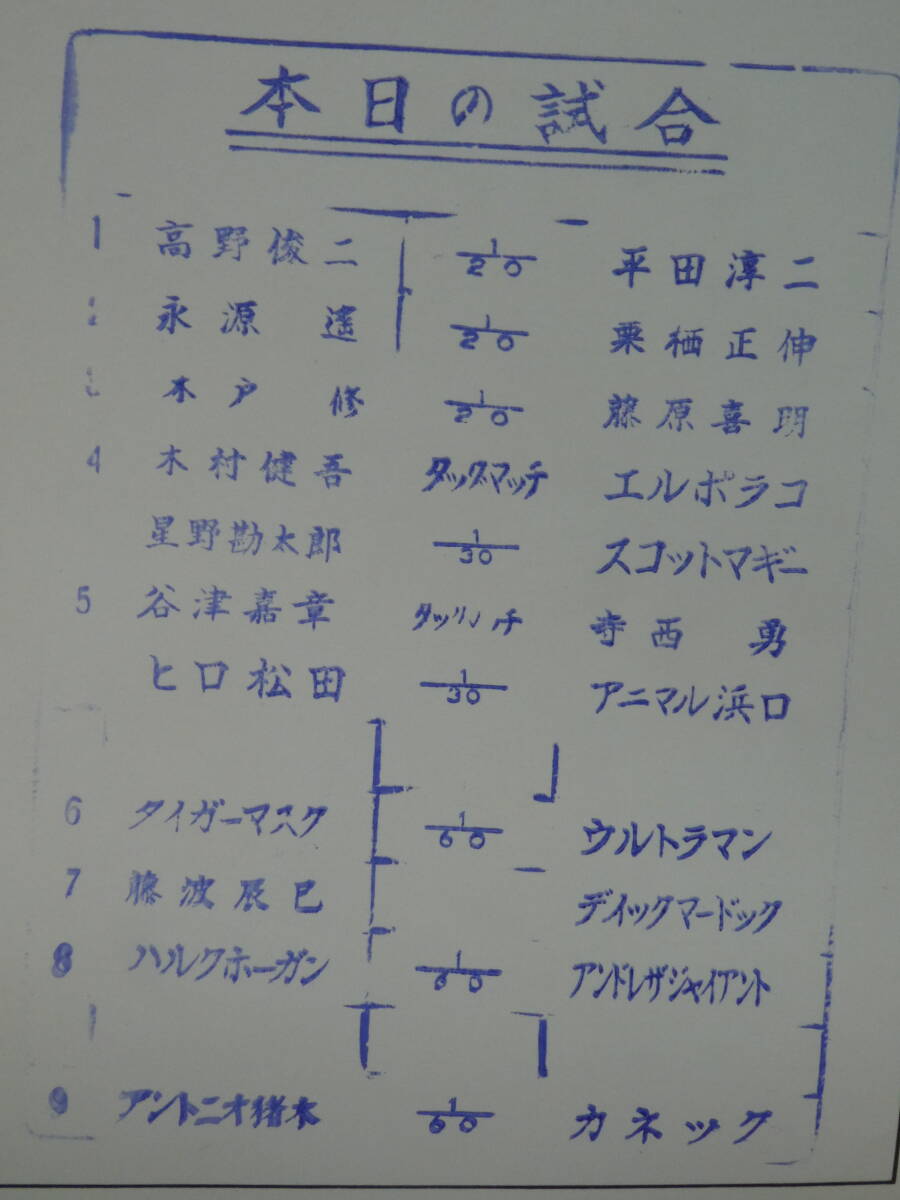 本日の試合
1 高野俊二 1/20 平田淳二
2 永源 遙 1/20 栗栖正伸
木戸 修 1/20 藤原喜明
4 木村健吾 タッグマッチ エルポラコ
星野勘太郎 1/30 スコットマギー
5 谷津嘉章 寺西 勇
ヒロ松田 1/30 アニマル浜口
6 タイガーマスク 1/60 ウルトラマン
7 藤波辰巳 デイックマードック
8 ハルクホーガン 1/60 アンドレザジャイアント
9 アントニオ猪木 1/60 カネック